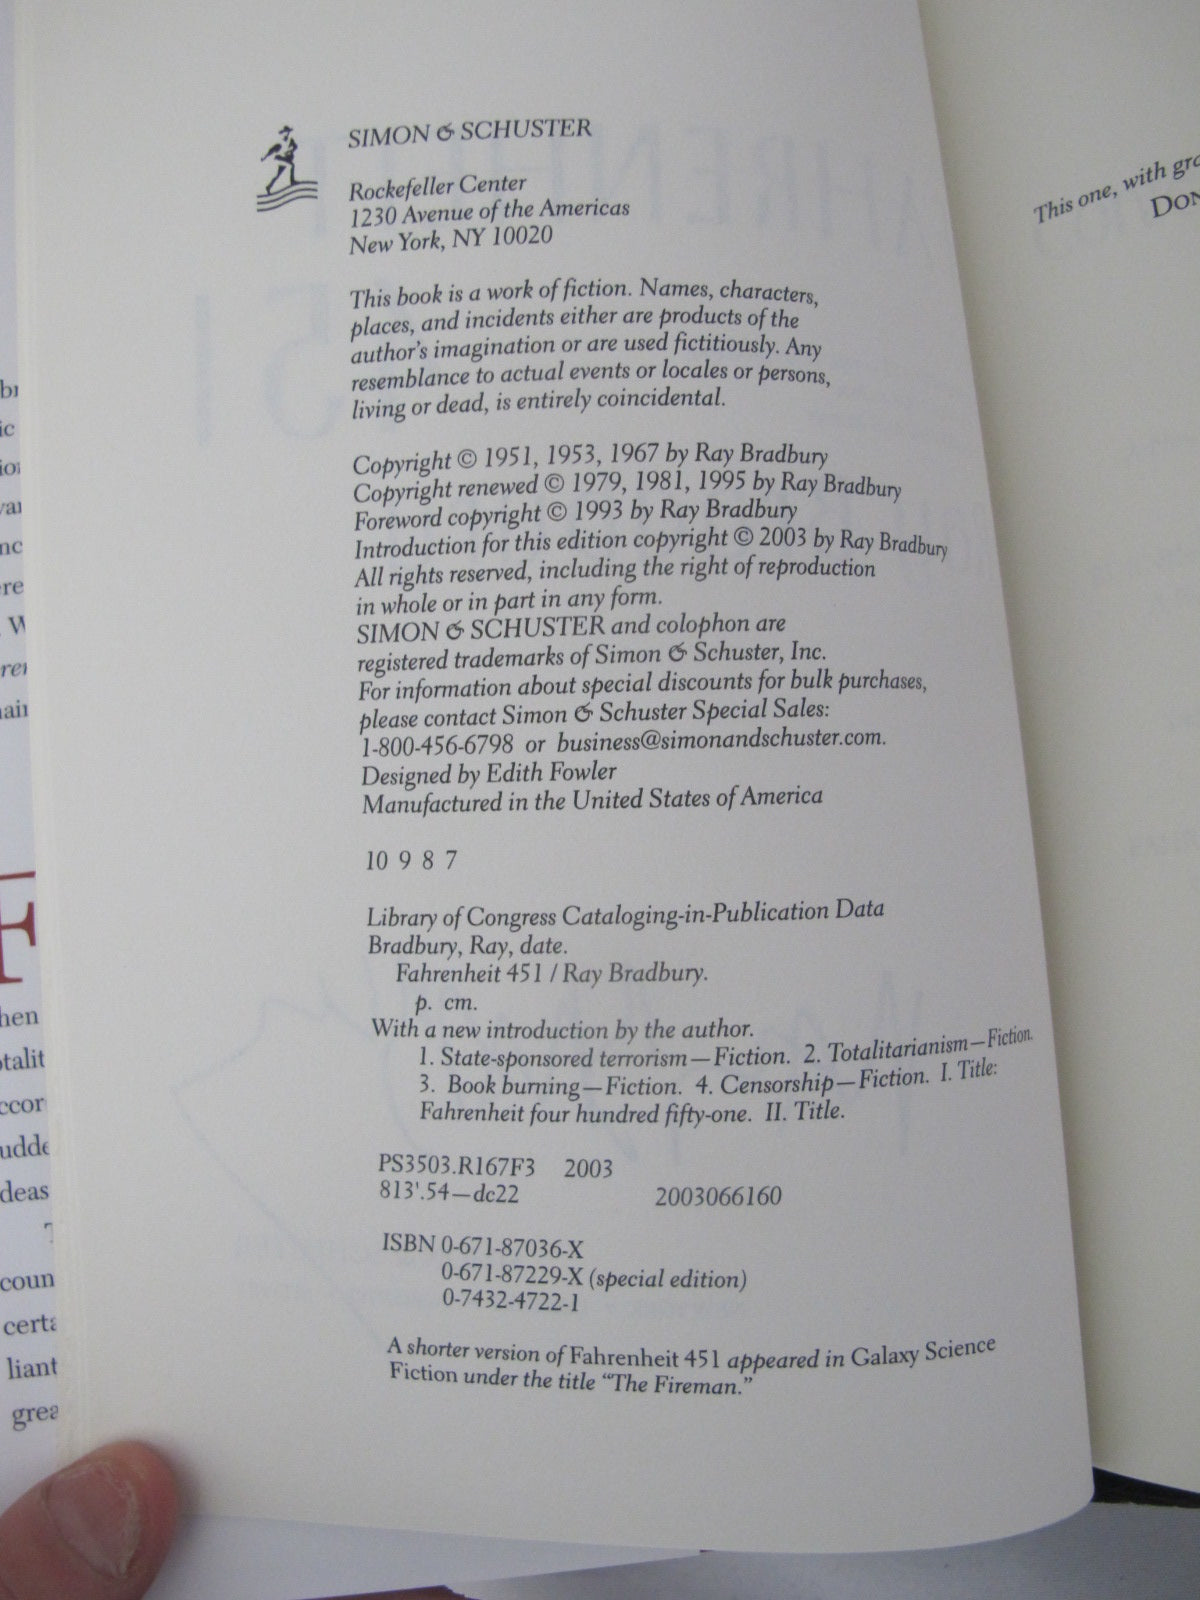 SIMON & SCHUSTER
Rockefeller Center
1230 Avenue of the Americas
New York, NY 10020
This book is a work of fiction. Names, characters,
places, and incidents either are products of the
author's imagination or are used fictitiously. Any
resemblance to actual events or locales or persons,
living or dead, is entirely coincidental.
Copyright © 1951, 1953, 1967 by Ray Bradbury
Copyright renewed © 1979, 1981, 1995 by Ray Bradbury
Foreword copyright © 1993 by Ray Bradbury
Introduction for this edition copyright © 2003 by Ray Bradbury
All rights reserved, including the right of reproduction
in whole or in part in any form.
SIMON & SCHUSTER and colophon are
registered trademarks of Simon & Schuster, Inc.
For information about special discounts for bulk purchases,
please contact Simon & Schuster Special Sales:
1-800-456-6798 or business@simonandschuster.com.
Designed by Edith Fowler
Manufactured in the United States of America
10 9 8 7
Library of Congress Cataloging-in-Publication Data
Bradbury, Ray, date.
Fahrenheit 451 / Ray Bradbury.
p. cm.
With a new introduction by the author.
1. State-sponsored terrorism—Fiction. 2. Totalitarianism—Fiction.
3. Book burning—Fiction. 4. Censorship—Fiction. I. Title:
Fahrenheit four hundred fifty-one. II. Title.
PS3503.R167F3 2003
813'.54—dc22 2003066160
ISBN 0-671-87036-X
0-671-87229-X (special edition)
0-7432-4722-1
A shorter version of Fahrenheit 451 appeared in Galaxy Science
Fiction under the title "The Fireman."
This one, with